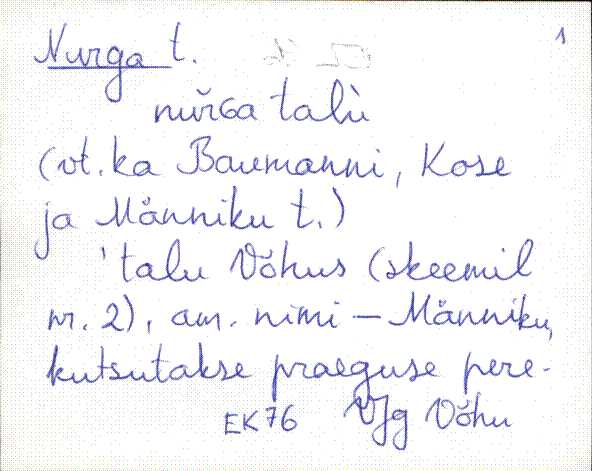 Nurga t. 1
nuŕGa talù
(vt. ka Baumanni, Kose
ja Männiku t.)
'talu Võhus (skeemil
nr. 2), am. nimi – Männiku,
kutsutakse praeguse pere-
EK76 VJg Võhu